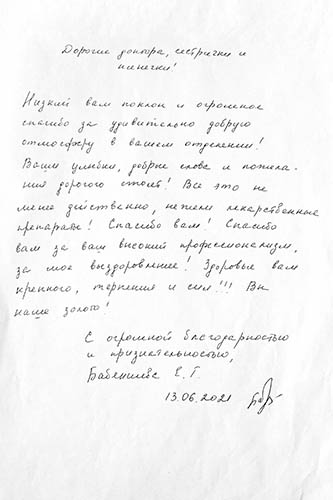 Дорогие доктора, сестрички и
нянечки!
Низкий вам поклон и огромное
спасибо за удивительно добрую
атмосферу в вашем отделении!
Ваши улыбки, добрые слова и пожела-
ния дорогого стоят! Все это не
менее действенно, нежели лекарственные
препараты! Спасибо вам! Спасибо
вам за ваш высокий профессионализм,
за мое выздоровление! Здоровья вам
крепкого, терпения и сил!!! Вы
наше золото!
С огромной благодарностью
и признательностью,
Е. Г.
13.06.2021